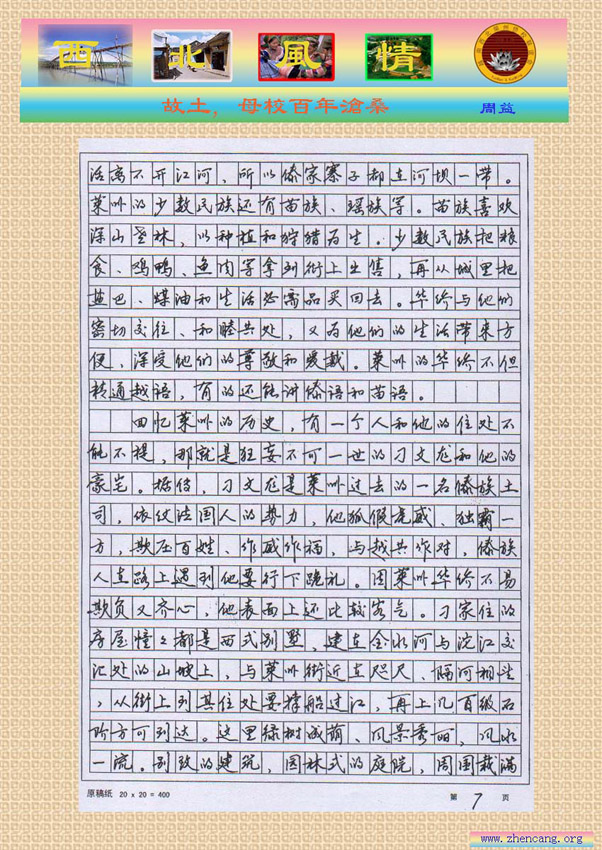 西北風情
故土，母校百年滄桑 周益
活离不开江河，所以傣家寨子都在河坝一带。
莱州的少数民族还有苗族、瑶族等。苗族喜欢
深山密林，以种植和狩猎为生。少数民族把粮
食、鸡鸭、鱼肉等拿到街上出售，再从城里把
盐巴、煤油和生活必需品买回去。华侨与他们
密切交往、和睦共处，又为他们的生活带来方
便，深受他们的尊敬和爱戴。莱州的华侨不但
精通越语，有的还能讲傣语和苗语。
回忆莱州的历史，有一个人和他的住处不
能不提，那就是狂妄不可一世的刁文龙和他的
豪宅。据传，刁文龙是莱州过去的一名傣族土
司，依仗法国人的势力，他狐假虎威、独霸一
方，欺压百姓、作威作福，与越共作对，傣族
人在路上遇到他要行下跪礼。因莱州华侨不易
欺负又齐心，他表面上还比较客气。刁家住的
房屋幢々都是西式别墅，建在金水河与沱江交
汇处的山坡上，与莱州街近在咫尺、隔河相望
，从街上到其住处要撑船过江，再上几百级石
阶方可到达。这里绿树成荫、风景秀丽，风水
一流。别致的建筑，园林式的庭院，周围栽满
原稿纸 20 x 20 = 400 第 7 页
www.zhencang.org